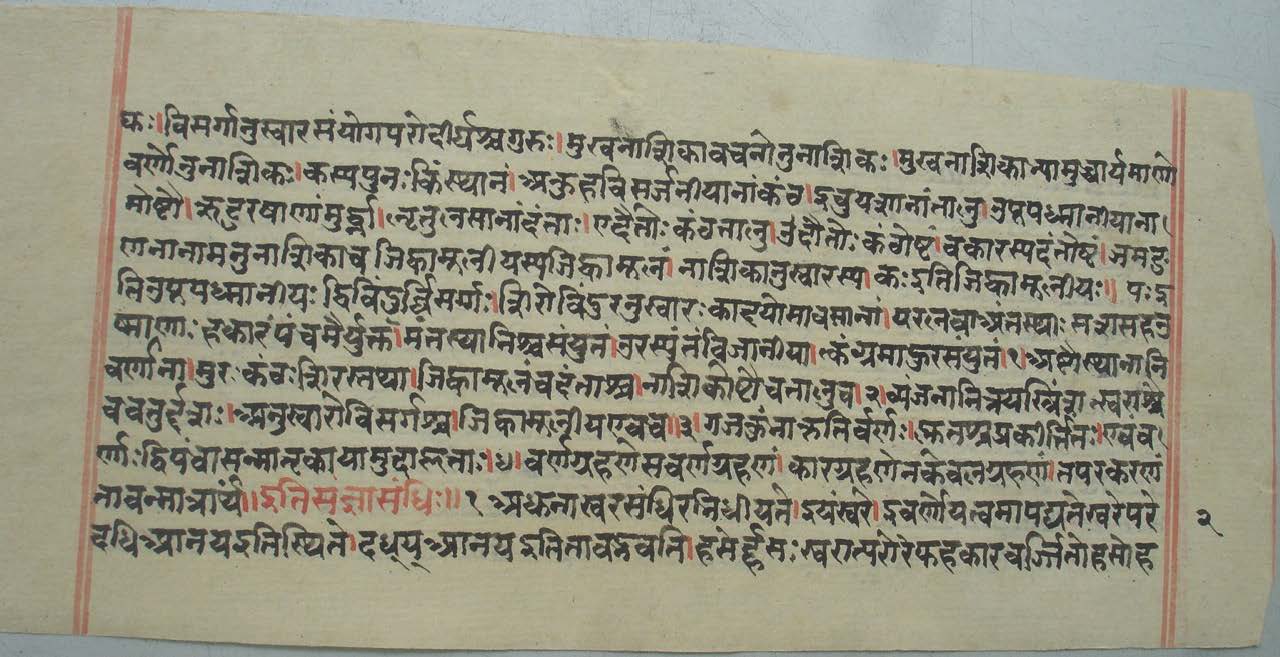 कः। विसर्गानुस्वारसंयोगपरोदीर्घश्चगुरुः। मुखनाशिकावचनोनुनाशिकः। मुखनाशिकाभ्यामुच्चार्यमाणो
वर्णोनुनाशिकः। कस्यपुनः किंस्थानं। अकुहविसर्जनीयानांकंठ। इचुयशानांतालु। उपूपध्मानीयाना।
मोष्टौ। ऋटुरषाणांमुर्द्धा। लृतुलसानांदंताः। एदैतोः कंठतालु। उदौतोः कंठोष्टं। वकारस्यदंतोष्टं। ञमङ
णनानामनुनाशिकाच जिह्वामूलीयस्यजिह्वामूलं। नाशिकानुस्वारस्य। कः इतिजिह्वामूलीयः॥ पः इ
तिउपूपध्मानीयः द्विविंदुर्व्विसर्गः। शिरोविंदुरनुस्वारः कादयोमावसानां। यरलवाअंतस्थाः सशषसहउ
ष्माणाः हकारंपंचमैर्युक्तं। मनस्थानिश्चसंयुतं। उरस्यंतंविजानीया। त्कंठ्यमाहुरसंयुतं। १। अष्टौस्थानानि
वर्णाना। मुरः कंठः शिरस्तथा। जिह्वामूलंचदंताश्च। नाशिकोष्टौचतालुच। २। व्यंजनानित्रयस्त्रिंश। त्स्वराश्चै
वचतुर्द्दशः। अनुस्वारोविसर्गश्च। जिह्वामूलीयएवच। ३। गजकुंनाकृतिर्वर्णः। प्लुतश्चप्रकीर्त्तितः। एवंव
र्णाः द्विपंचासन्मातृकायामुदाहृताः। ४। वर्णग्रहणेसवर्णग्रहणं। कारग्रहणेनकेवलग्रहणं। तपरकरणं
तावन्मात्रार्थं॥ इतिसंज्ञासंधिः॥ १ अधुनास्वरसंधिरभिधीयते। इयंस्वरे। इवर्णोयत्वमापद्यतेस्वरेपरे
दधिआनयइतिस्थिते। दध्य्आनय इतितावद्भवति। हसेर्हहसः स्वरात्परोरेफहकारवर्ज्जितोहसोह
२